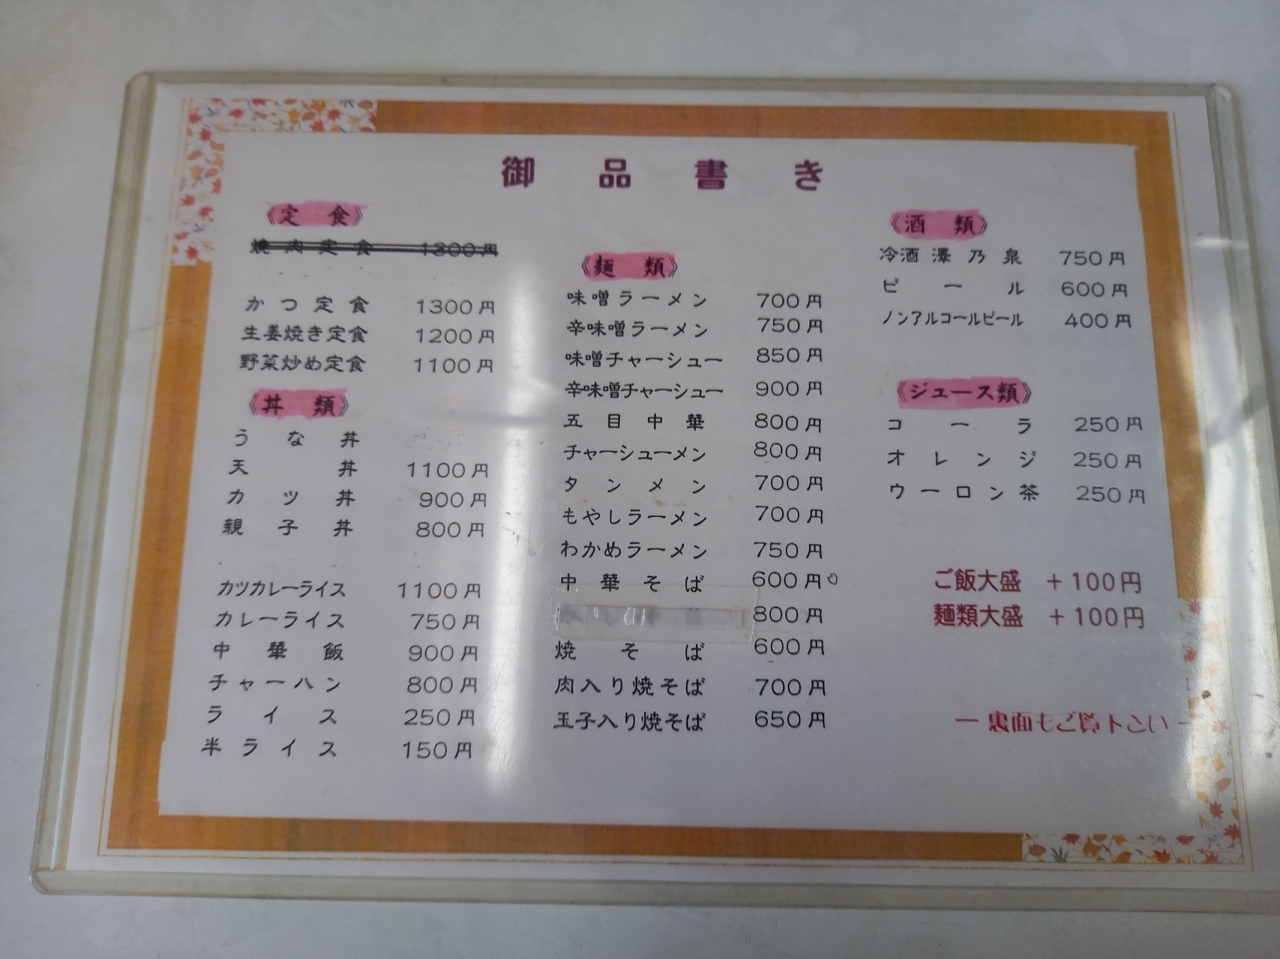 御品書き
《定食》
焼肉定食 1300円
かつ定食 1300円
生姜焼き定食 1200円
野菜炒め定食 1100円
《丼類》
うな丼
天丼 1100円
カツ丼 900円
親子丼 800円
カツカレーライス 1100円
カレーライス 750円
中華飯 900円
チャーハン 800円
ライス 250円
半ライス 150円
《麺類》
味噌ラーメン 700円
辛味噌ラーメン 750円
味噌チャーシュー 850円
辛味噌チャーシュー 900円
五目中華 800円
チャーシューメン 800円
タンメン 700円
もやしラーメン 700円
わかめラーメン 750円
中華そば 600円
800円
焼そば 600円
肉入り焼そば 700円
玉子入り焼そば 650円
《酒類》
冷酒澤乃泉 750円
ビール 600円
ノンアルコールビール 400円
《ジュース類》
コーラ 250円
オレンジ 250円
ウーロン茶 250円
ご飯大盛 +100円
麺類大盛 +100円
― 裏面もご覧下さい ―